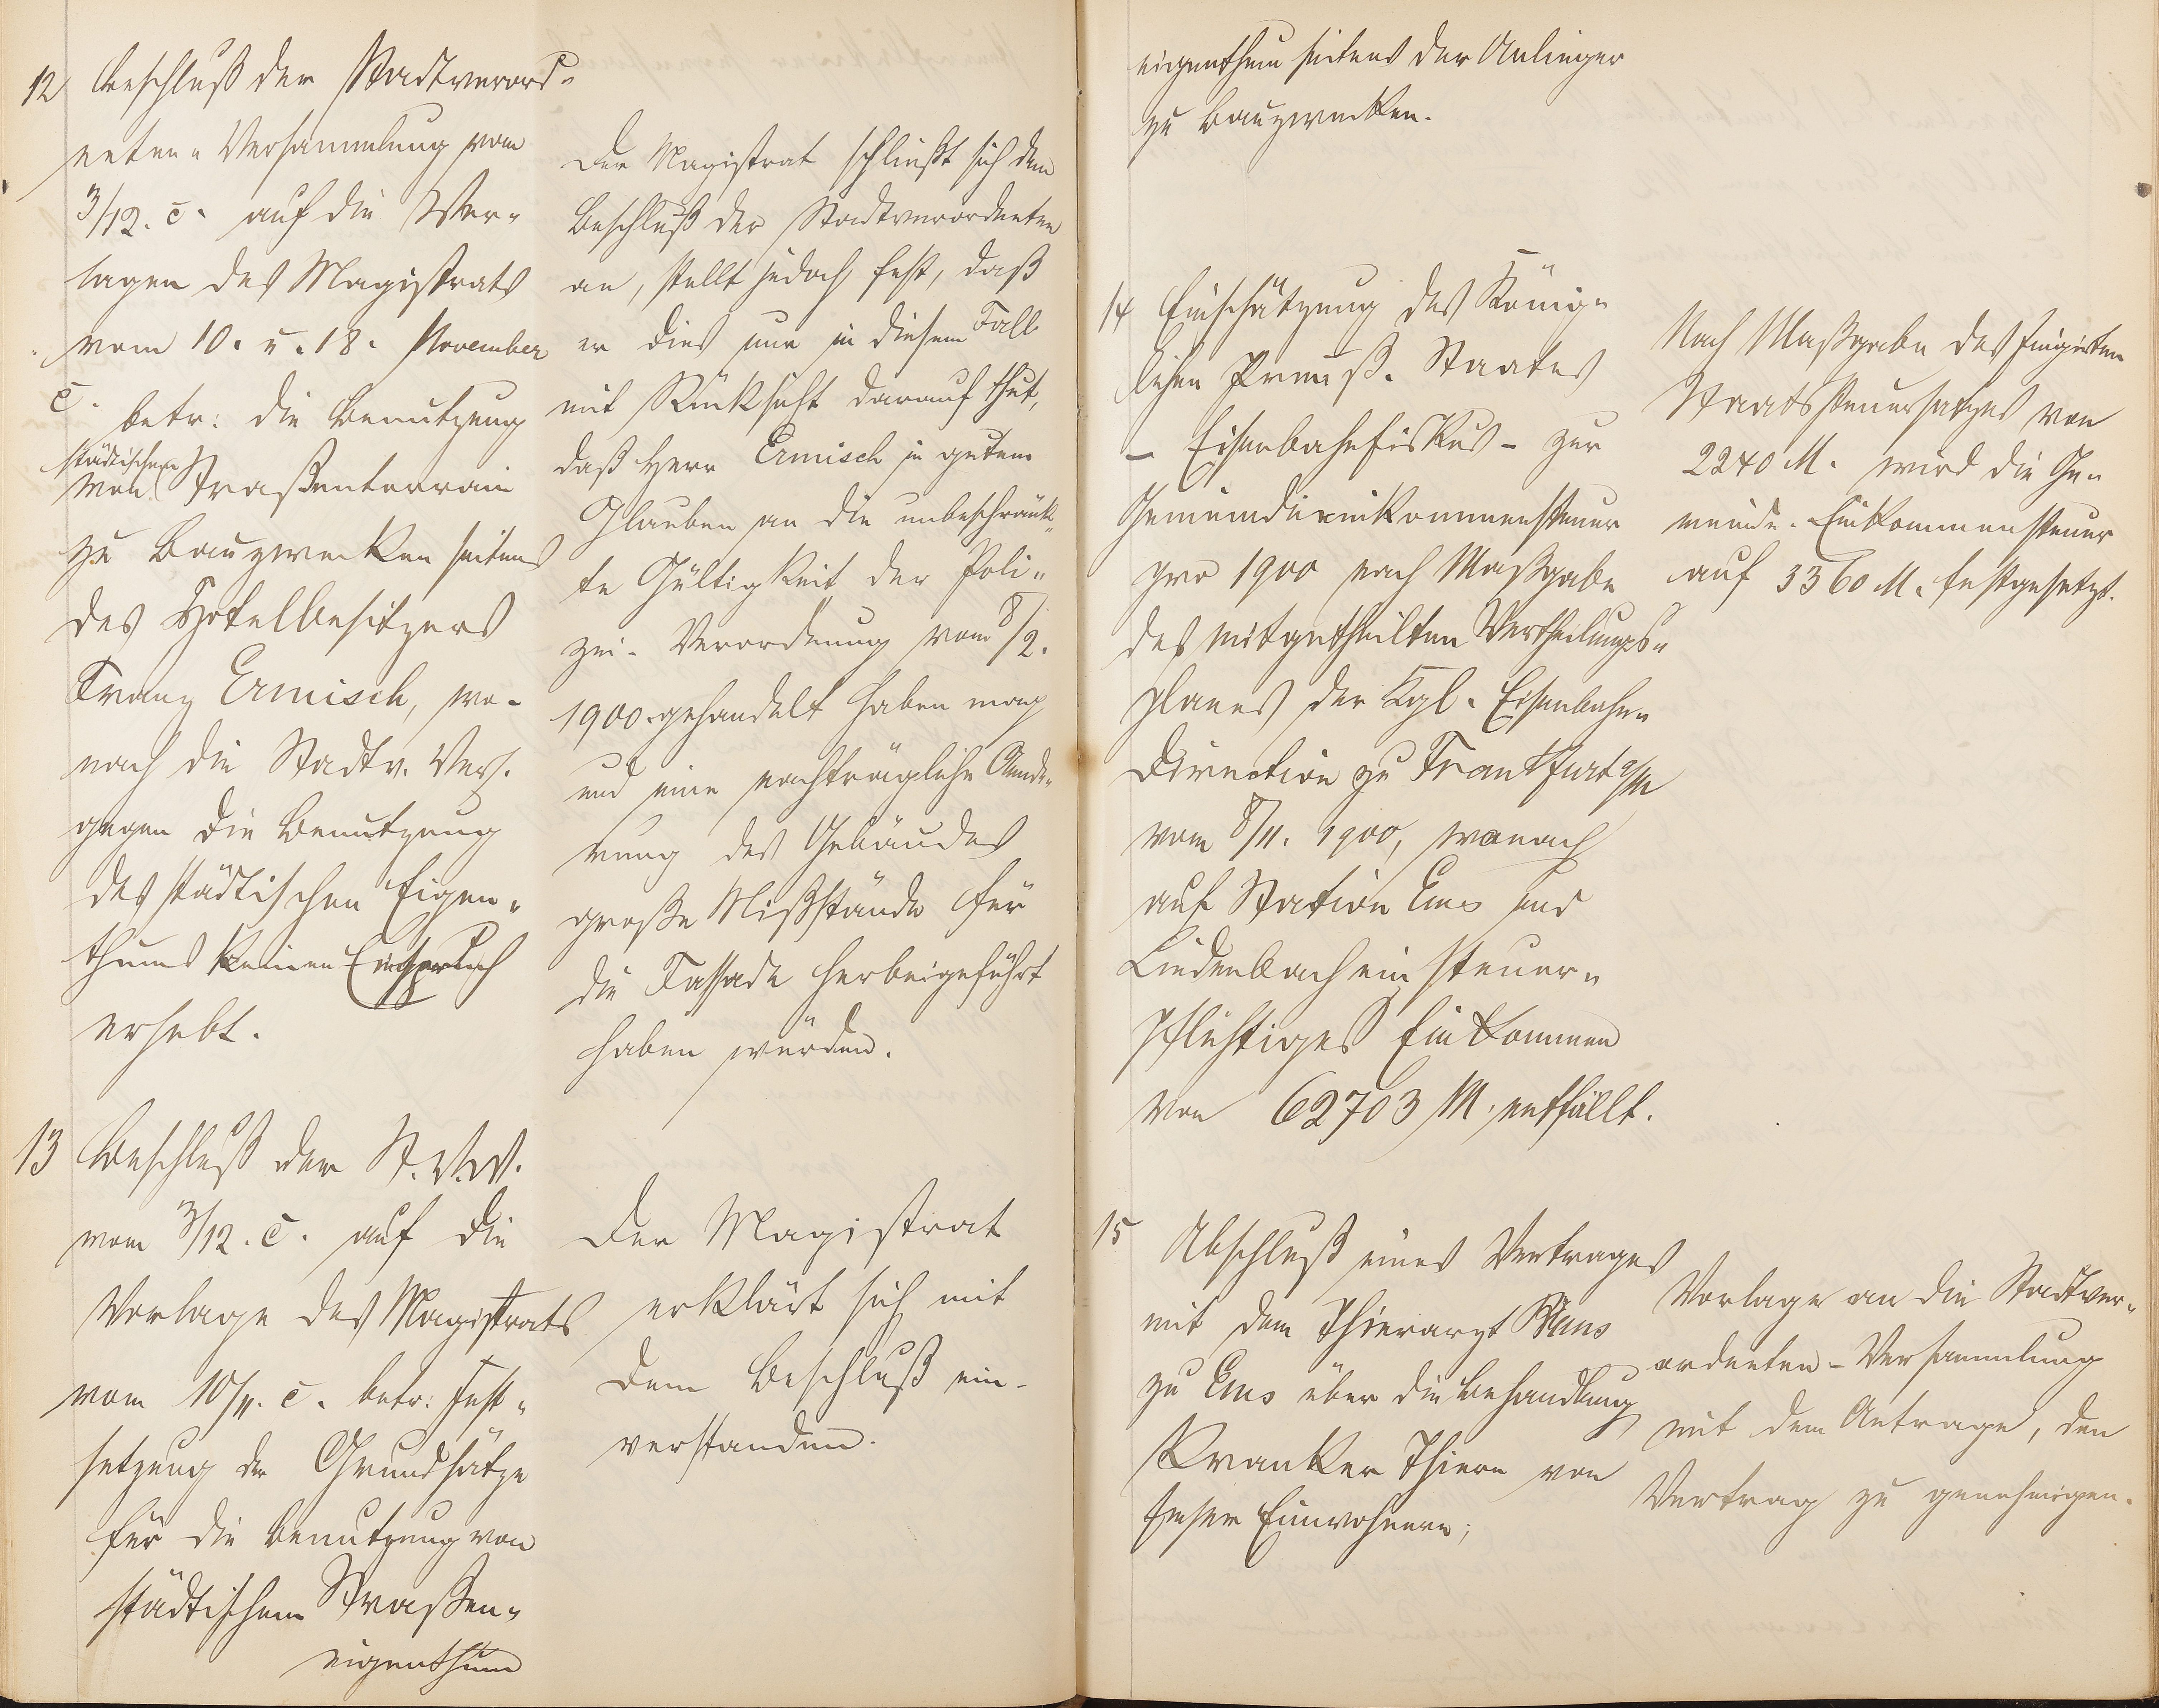 12 Beschluß der Stadtverord-
neten-Versammlung vom
3/12. c. auf die Vor-
lagen des Magistrats
vom 10. u. 18. November
c. betr: die Benutzung
städtischem
von Straßenterrain
zu Bauzwecken seitens
des Hotelbesitzers
Franz Ermisch, wo-
nach die Stadtv. Vers.
gegen die Benutzung
des städtischen Eigen-
thums keinen Einspruch
erhebt.
Der Magistrat schließt sich dem
Beschluß der Stadtverordneten
an, stellt jedoch fest, daß
er dies nur in diesem Fall
mit Rücksicht darauf thut,
daß Herr Ermisch in gutem
Glauben an die unbeschränk-
te Gültigkeit der Poli-
zei-Verordnung vom 8/2.
1900 gehandelt haben mag
und eine nachträgliche Aende-
rung des Gebäudes
große Mißstände für
die Fassade herbeigeführt
haben würden.
13 Beschluß der St. V. V.
vom 3/12. c. auf die
Vorlage des Magistrats
vom 10/11. c. betr: Fest-
setzung der Grundsätze
für die Benutzung von
städtischem Straßen-
eigenthum
Der Magistrat
erklärt sich mit
dem Beschluß ein-
verstanden.
eigenthum seitens der Anlieger
zu Bauzwecken.
14 Einschätzung des König-
lichen Preuß. Staates
- Eisenbahnfiskus - zur
Gemeindeeinkommensteuer
pro 1900 nach Maßgabe
des mitgetheilten Vertheilungs-
planes der Kgl. Eisenbahn-
Direction zu Frankfurt a/M
vom 8/11. 1900, wonach
auf Station Ems und
Lindenbach ein steuer-
pflichtiges Einkommen
von 62703 M. entfällt.
Nach Maßgabe des fingirten
Staatssteuersatzes von
2240 M. wird die Ge-
meinde-Einkommensteuer
auf 3360 M. festgesetzt.
15 Abschluß eines Vertrages
mit dem Thierarzt
zu Ems über die Behandlung
kranker Thiere von
Emser Einwohnern;
Vorlage an die Stadtver-
ordneten-Versammlung
mit dem Antrage, den
Vertrag zu genehmigen.